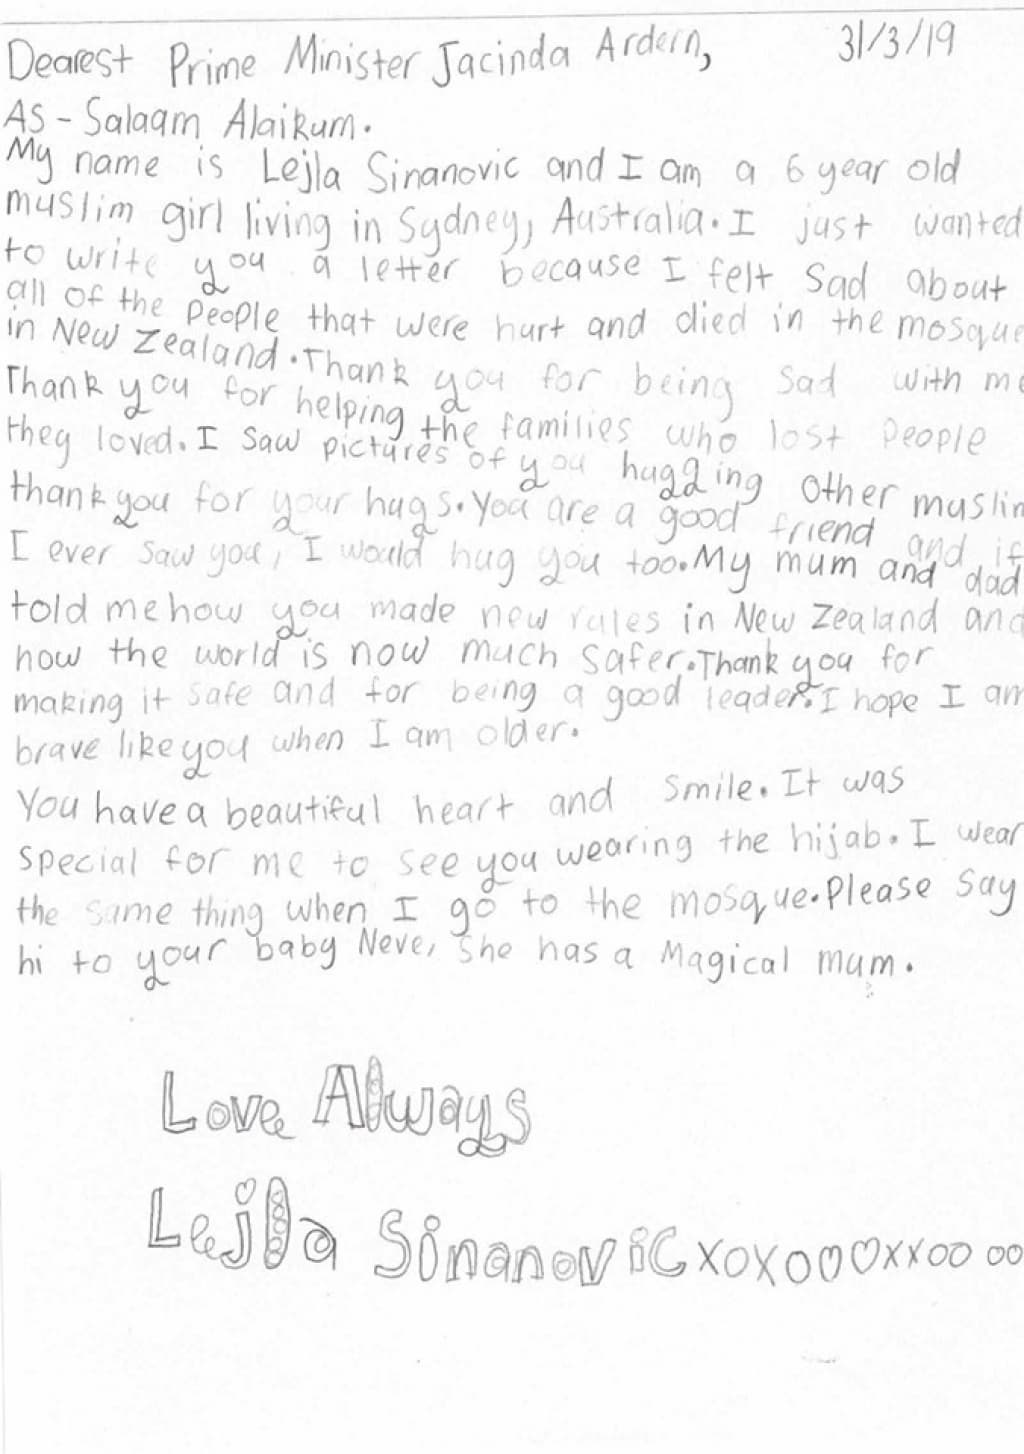 Dearest Prime Minister Jacinda Ardern, 31/3/19
AS - Salaam Alaikum.
My name is Lejla Sinanovic and I am a 6 year old
muslim girl living in Sydney, Australia. I just wanted
to write you a letter because I felt sad about
all of the people that were hurt and died in the mosque
in New Zealand. Thank you for being sad with me
Thank you for helping the families who lost people
they loved. I saw pictures of you hugging other muslim
thank you for your hugs. You are a good friend and if
I ever saw you, I would hug you too. My mum and dad
told me how you made new rules in New Zealand and
how the world is now much safer. Thank you for
making it safe and for being a good leader. I hope I am
brave like you when I am older.
You have a beautiful heart and smile. It was
special for me to see you wearing the hijab. I wear
the same thing when I go to the mosque. Please say
hi to your baby Neve, she has a Magical mum.
Love Always
Lejla Sinanovic xoxoo♡♡xxoo oo